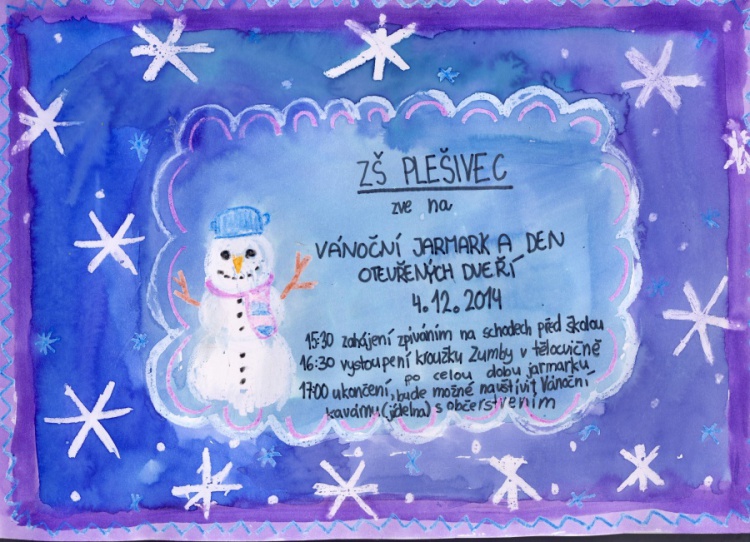 ZŠ PLEŠIVEC
zve na
VÁNOČNÍ JARMARK A DEN
OTEVŘENÝCH DVEŘÍ
4.12.2014
15:30 zahájení zpíváním na schodech před školou
16:30 vystoupení kroužku Zumby v tělocvičně
po celou dobu jarmarku
17:00 ukončení, bude možné navštívit Vánoční
kavárnu (jídelna) s občerstvením